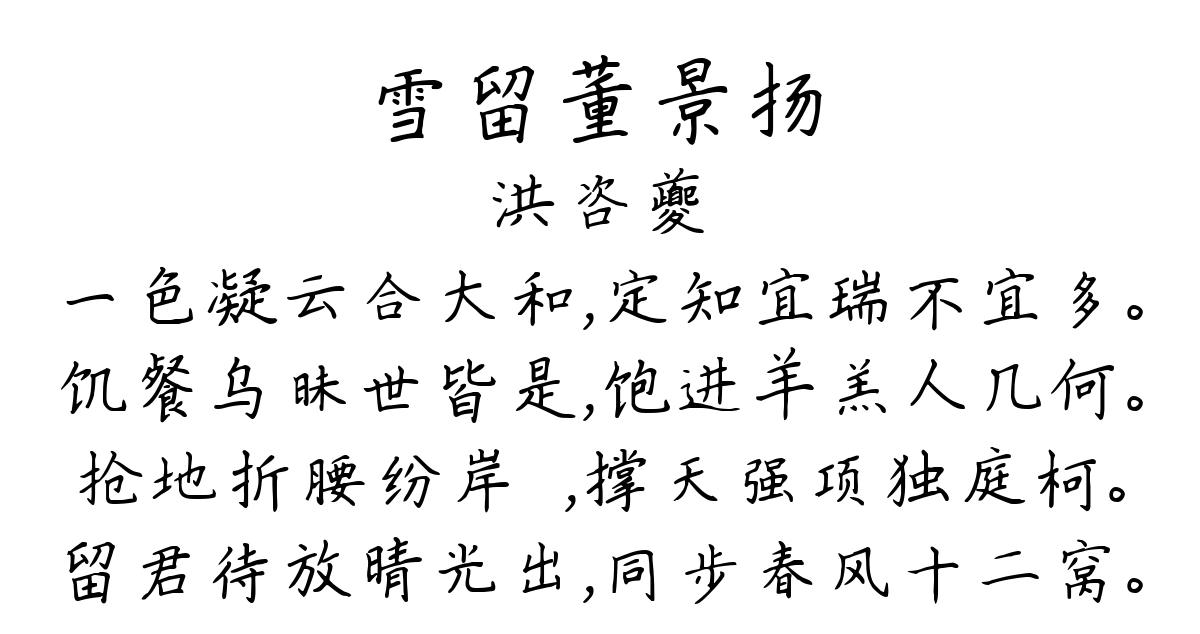 雪留董景扬
洪咨夔
一色凝云合大和,定知宜瑞不宜多。
饥餐乌昧世皆是,饱进羊羔人几何。
抢地折腰纷岸 ,撑天强项独庭柯。
留君待放晴光出,同步春风十二窝。